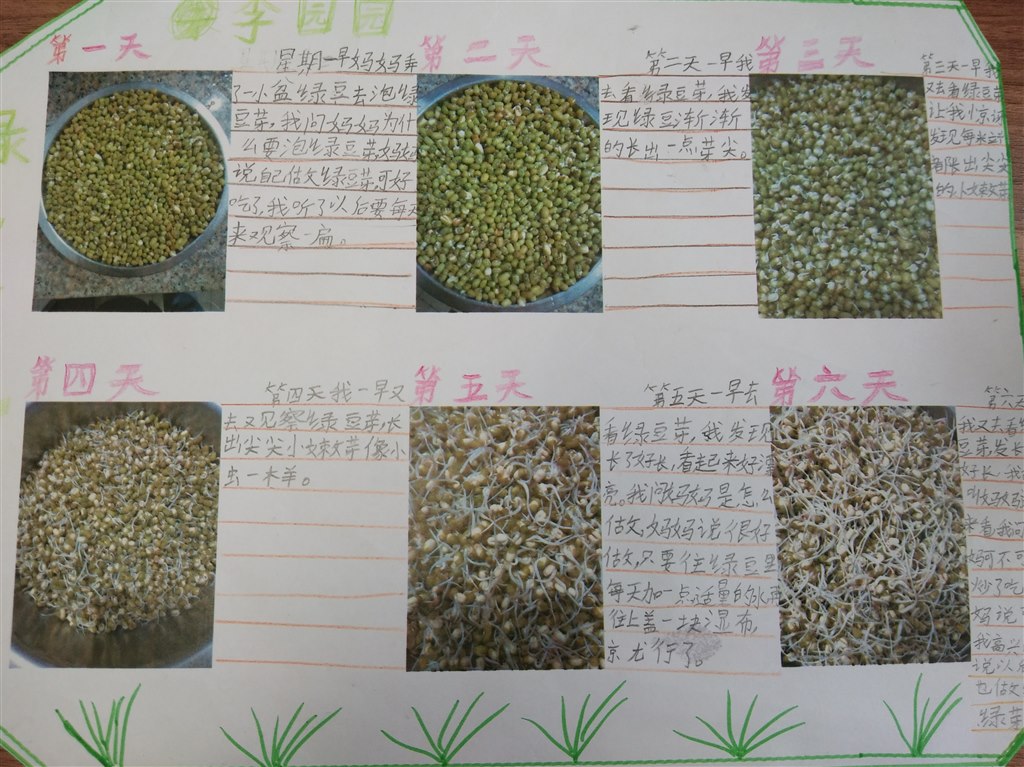 李园园
绿
第一天
星期一早妈妈弄
了一小盆绿豆去泡绿
豆芽,我问妈妈为什
么要泡绿豆芽妈妈
说自己做文绿豆芽,可好
吃了,我听了以后要每天
来观察一扁。
第二天
第二天一早我
去看绿豆芽,我发
现绿豆渐渐
的长出一点芽尖。
第三天
第三天一早我
又去看绿豆芽
让我惊讶
发现每米立子
有张出尖尖
的小嫩芽
第四天
第四天我一早又
去又见察绿豆芽,长
出尖尖小嫩芽像小
虫一木羊。
第五天
第五天一早去
看绿豆芽,我发现
长了好长,看起来好漂
亮。我问妈妈了是怎么
做文,妈妈说很好
做文,只要往绿豆里
每天加一点适量的水再
往上盖一块湿布,
京尤行了。
第六天
第六天
我又去看绿
豆芽发长
好长一我
叫妈妈
来看我问
妈可不可
炒了吃
妈说
我高兴
说以后
也做文
绿芽